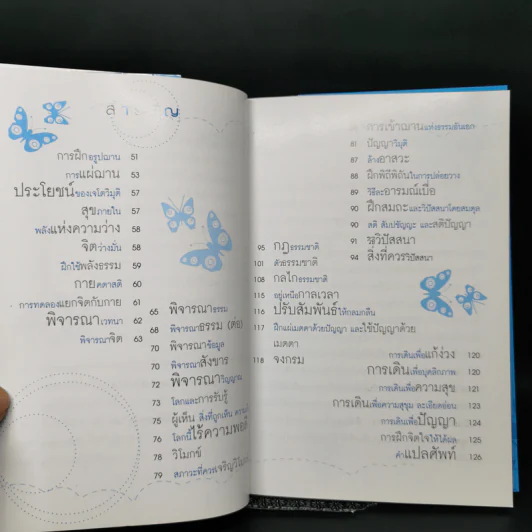 สารบัญ
การฝึกอรูปฌาน 51
การแผ่ฌาน 53
ประโยชน์ของเจโตวิมุติ 57
สุขภายใน 57
พลังแห่งความว่าง 58
จิตว่างมั่น 58
ฝึกใช้พลังธรรม 59
กายคตาสติ 60
การทดลองแยกจิตกับกาย 61
พิจารณาเวทนา 62
พิจารณาจิต 63
65 พิจารณาธรรม
68 พิจารณาธรรม (ต่อ)
70 พิจารณาข้อมูล
70 พิจารณาสังขาร
72 พิจารณาวิญญาณ
74 โลกและการรับรู้
75 ผู้เห็น สิ่งที่ถูกเห็น
76 โลกนี้ไร้ความพอดี
78 วิโมกข์
79 สภาวะที่ควรเจริญวิโมกข์
การเข้าฌานแห่งธรรมอันเอก
81 ปัญญาวิมุติ
87 ล้างอาสวะ
88 ฝึกพิถีพิถันในการปล่อยวาง
89 วิธีละอารมณ์เบื่อ
90 ฝึกสมถะและวิปัสสนาโดยสมดุล
90 สติ สัมปชัญญะ และสติปัญญา
91 รอวิปัสสนา
94 สิ่งที่ควรวิปัสสนา
95 กฎธรรมชาติ
101 ตัวธรรมชาติ
108 กลไกธรรมชาติ
115 อยู่เหนือกาลเวลา
116 ปรับสัมพันธ์ให้กลมกลืน
117 ฝึกแผ่เมตตาด้วยปัญญา และใช้ปัญญาด้วย
เมตตา
118 จงกรม
การเดินเพื่อแก้ง่วง 120
การเดินเพื่อบุคลิกภาพ 120
การเดินเพื่อความสุข 121
การเดินเพื่อความสุขุม ละเอียดอ่อน 123
การเดินเพื่อปัญญา 124
การฝึกจิตใจให้ได้ผล 125
คำแปลศัพท์ 126